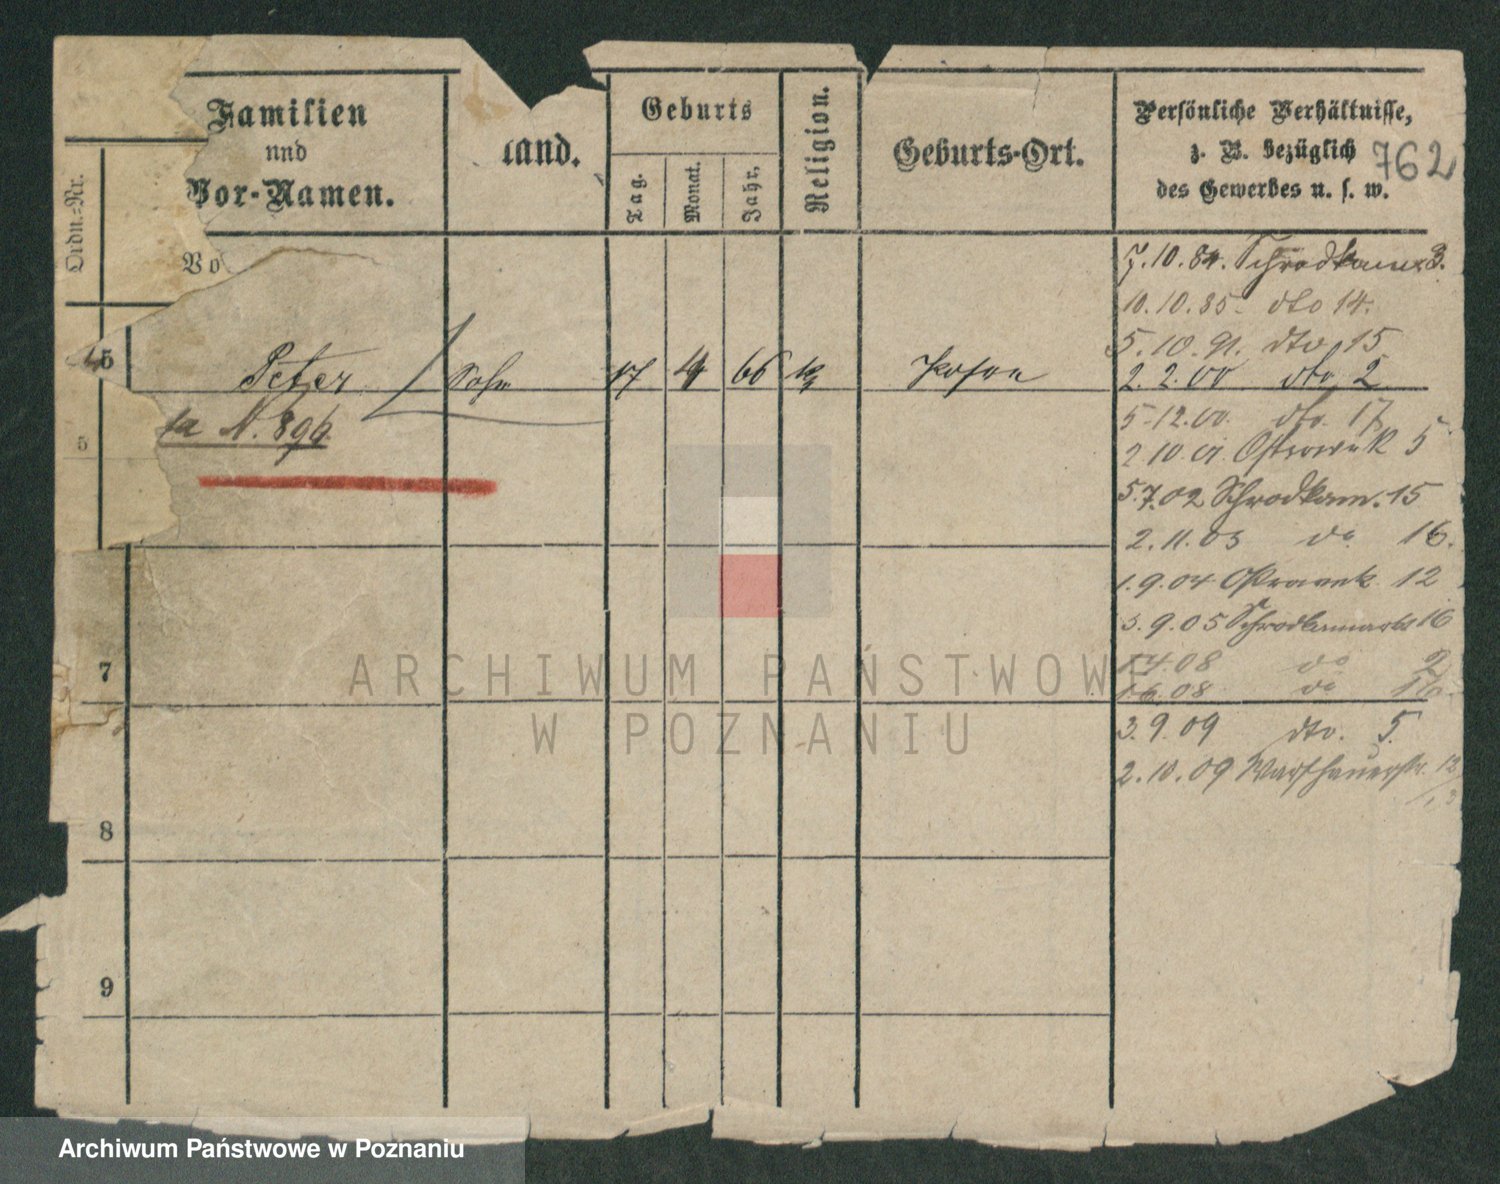 Ordn.-Nr.
Familien
und
Vor-Namen.
Vo
tand.
Geburts
Tag.
Monat.
Jahr.
Religion.
Geburts-Ort.
Persönliche Verhältnisse,
z. B. bezüglich
des Gewerbes u. s. w.
762
5 Peter Sohn 17 4 66 Posen
N. 896
5
7
8
9
7.10.84. Schrodkamr 3.
10.10.85. dto 14.
5.10.91. dto 15
2.2.00 dto 2
5.12.00. dto. 17
2.10.01 Ostrowek 5
5.7.02 Schrodkam. 15
2.11.03 do 16.
1.9.04 Ostrowek 12
3.9.05 Schrodkamarkt 16
1.4.08 do 2
1.6.08 do
3.9.09 dto. 5.
2.10.09 Warthauerstr. 12
ARCHIWUM PAŃSTWOWE
W POZNANIU
Archiwum Państwowe w Poznaniu